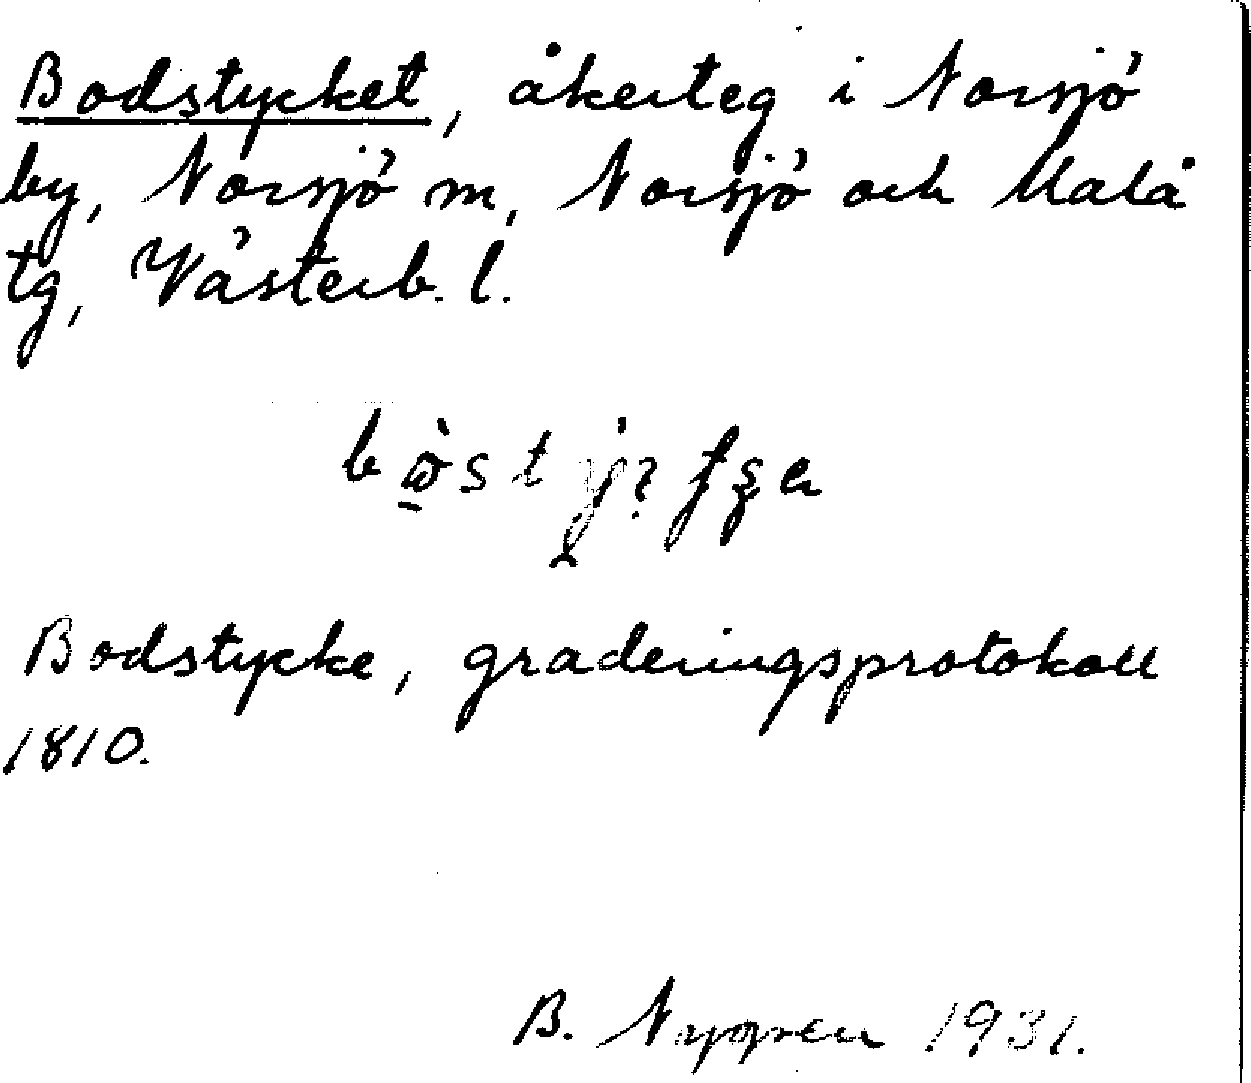 Bodstycket, åkerteg i Norsjö
by, Norsjö m, Norsjö och Malå
tg, Västerb. l.
Bodstycke, graderingsprotokoll
1810.
B. Nygren 1931.